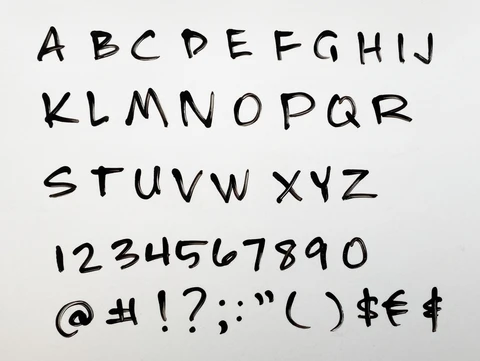 A B C D E F G H I J
K L M N O P Q R
S T U V W X Y Z
1 2 3 4 5 6 7 8 9 0
@ # ! ? ; : " ( ) $ € ¢